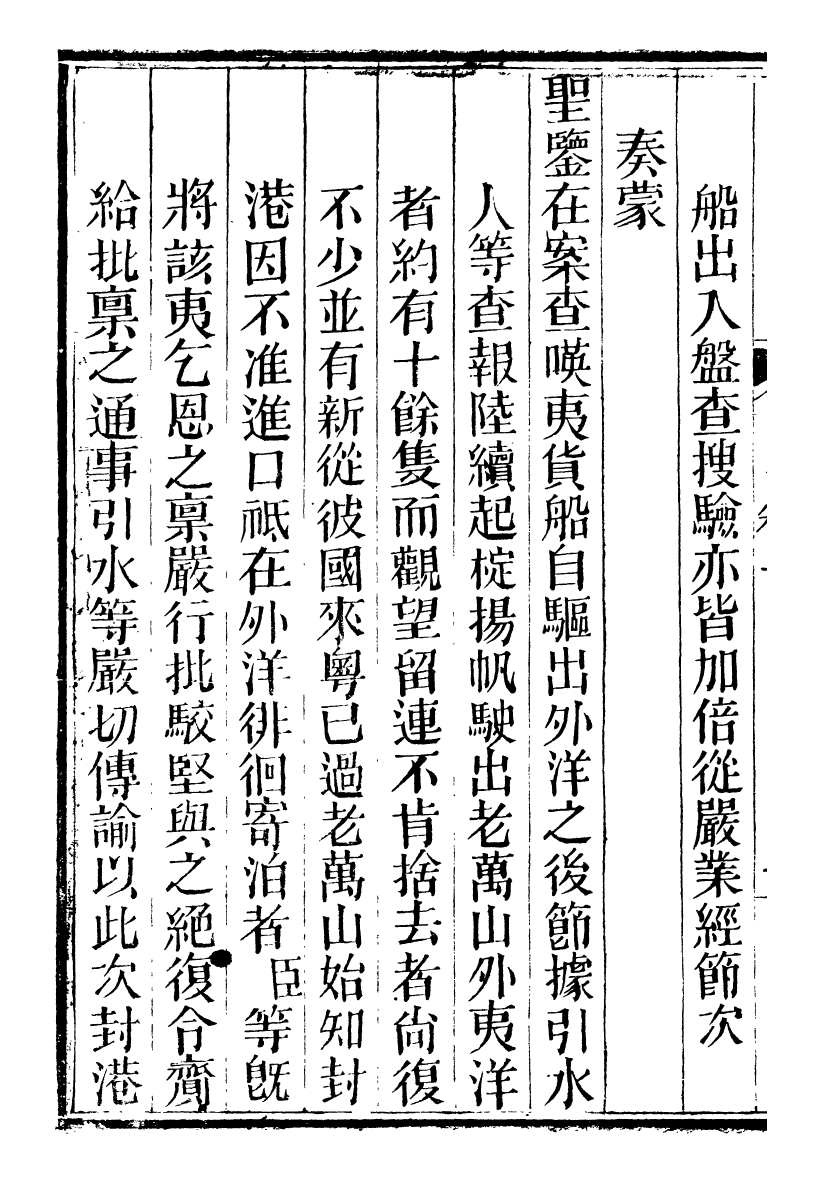 船出入盤查搜驗亦皆加倍從嚴業經節次
奏蒙
聖鑒在案查㗸夷貨船自驅出外洋之後節據引水
人等查報陸續起椗揚帆駛出老萬山外夷洋
者約有十餘隻而觀望留連不肯捨去者尙復
不少並有新從彼國來粵已過老萬山始知封
港因不准進口祗在外洋徘徊寄泊者臣等旣
將該夷乞恩之稟嚴行批駮堅與之絕復合齎
給批稟之通事引水等嚴切傳諭以此次封港